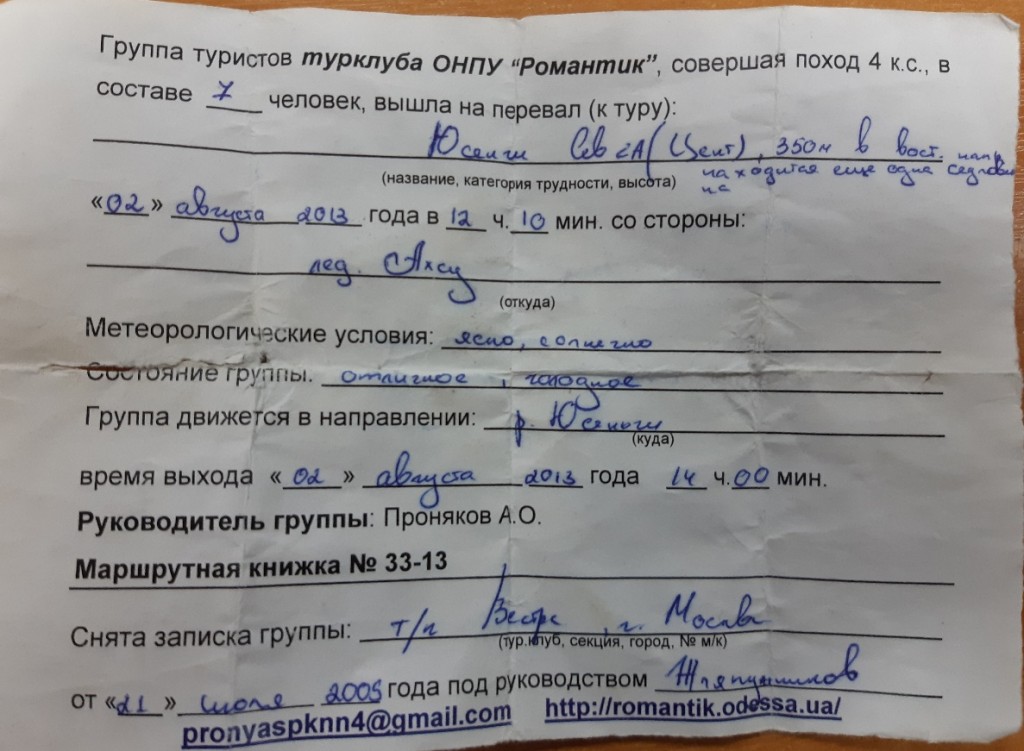 Группа туристов турклуба ОНПУ “Романтик”, совершая поход 4 к.с., в
составе 7 человек, вышла на перевал (к туру):
Юсенги Сев 2А (Цент), 350м в вост. напр
находится еще одна седлови
на
(название, категория трудности, высота)
«02» августа 2013 года в 12 ч. 10 мин. со стороны:
лед. Аксу
(откуда)
Метеорологические условия: ясно, солнечно
Состояние группы. отличное, голодное
Группа движется в направлении: р. Юсеньги
(куда)
время выхода «02» августа 2013 года 14 ч. 00 мин.
Руководитель группы: Проняков А.О.
Маршрутная книжка № 33-13
Снята записка группы: т/г Вестра, г. Москва
(тур.клуб, секция, город, № м/к)
от «21» июля 2005 года под руководством
pronyaspknn4@gmail.com http://romantik.odessa.ua/